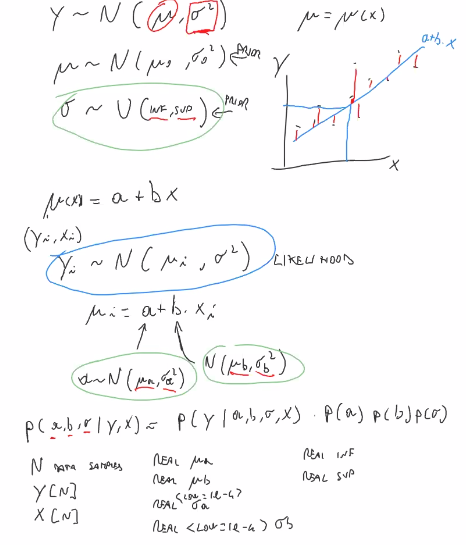 Y ~ N ( μ , σ² )
μ = μ(x)
μ ~ N ( μ₀ , σ₀² ) ← PRIOR
σ ~ U ( INF , SUP ) ← PRIOR
Y
a+b·x
X
μ(x) = a + b x
(Yi, Xi)
Yi ~ N ( μi , σ² )
LIKELIHOOD
μi = a + b · xi
a ~ N ( μa , σa² )
N ( μb , σb² )
p( a, b, σ | Y, X ) = p( Y | a, b, σ, X ) · p(a) p(b) p(σ)
N DATA SAMPLES
Y [N]
X [N]
REAL μa
REAL μb
REAL <LOW=1e-4> σa
REAL <LOW=1e-4> σb
REAL INF
REAL SUP